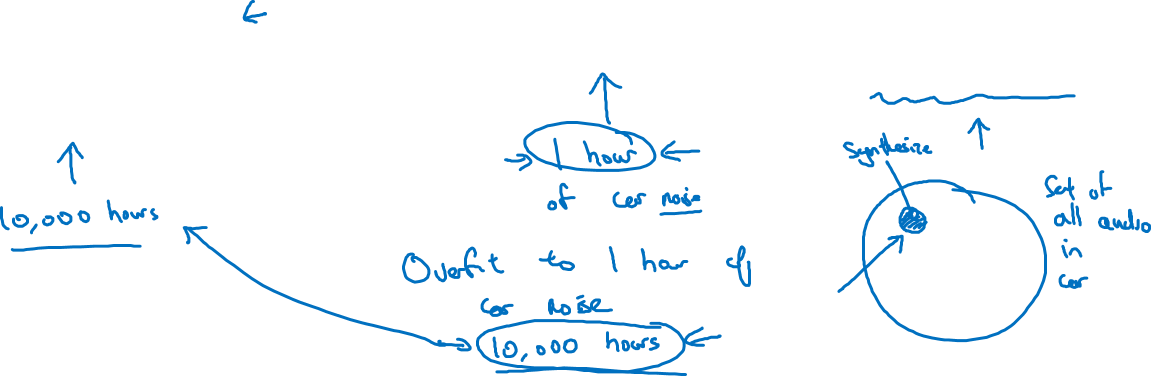 10,000 hours
1 hour
of car noise
Overfit to 1 hour of
car noise
10,000 hours
Synthesize
Set of
all audio
in
car